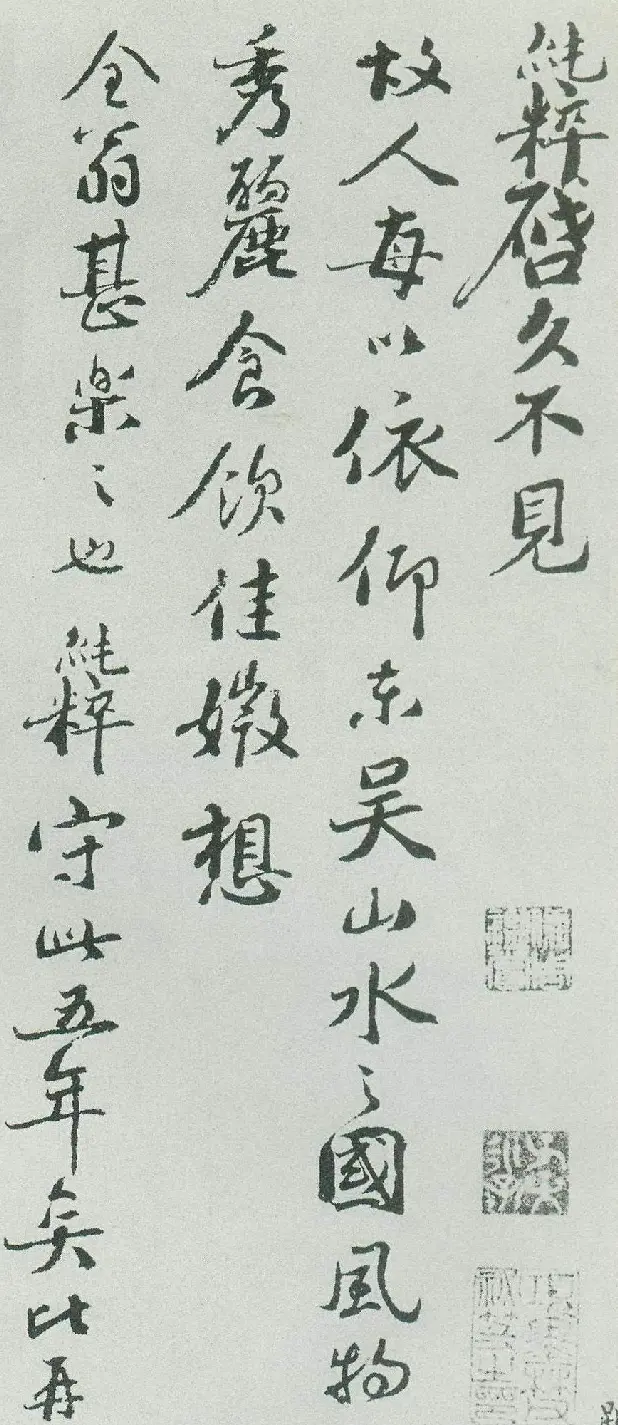 純粹啓久不見
故人每以依仰東吳山水之國風物
秀麗食飲佳媺想
全翁甚樂之也純粹守此五年矣比再